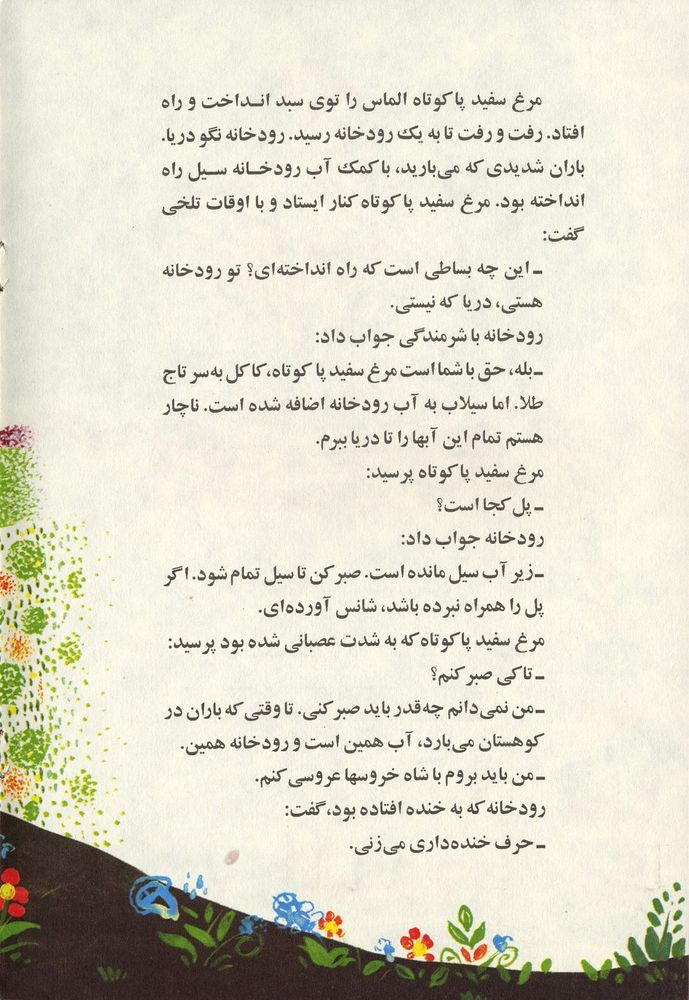 مرغ سفید پا کوتاه الماس را توی سبد انداخت و راه
افتاد. رفت و رفت تا به یک رودخانه رسید. رودخانه نگو دریا.
باران شدیدی که می‌بارید، با کمک آب رودخانه سیل راه
انداخته بود. مرغ سفید پا کوتاه کنار ایستاد و با اوقات تلخی
گفت:
ـ این چه بساطی است که راه انداخته‌ای؟ تو رودخانه
هستی، دریا که نیستی.
رودخانه با شرمندگی جواب داد:
ـ بله، حق با شما است مرغ سفید پا کوتاه، کاکل به‌سر تاج
طلا. اما سیلاب به آب رودخانه اضافه شده است. ناچار
هستم تمام این آبها را تا دریا ببرم.
مرغ سفید پا کوتاه پرسید:
ـ پل کجا است؟
رودخانه جواب داد:
ـ زیر آب سیل مانده است. صبر کن تا سیل تمام شود. اگر
پل را همراه نبرده باشد، شانس آورده‌ای.
مرغ سفید پا کوتاه که به شدت عصبانی شده بود پرسید:
ـ تا کی صبر کنم؟
ـ من نمی‌دانم چه‌قدر باید صبر کنی. تا وقتی که باران در
کوهستان می‌بارد، آب همین است و رودخانه همین.
ـ من باید بروم با شاه خروسها عروسی کنم.
رودخانه که به خنده افتاده بود، گفت:
ـ حرف خنده‌داری می‌زنی.